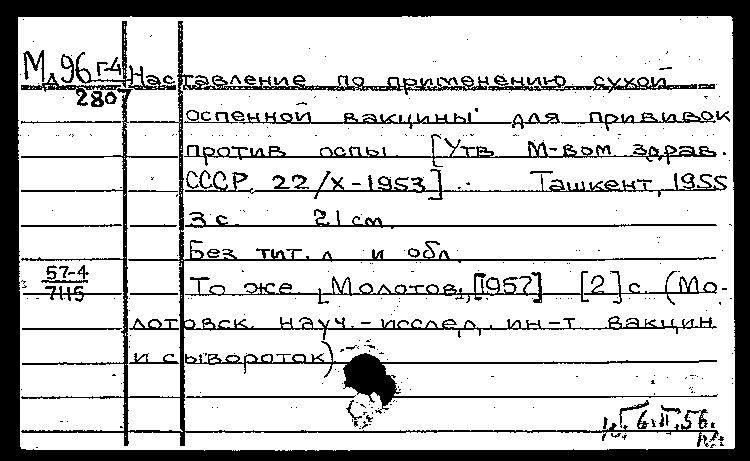 М, 96 г-4
2807
Наставление по применению сухой
оспенной вакцины для прививок
против оспы. [Утв М-вом здрав.
СССР, 22/X-1953]. Ташкент, 1955
3 с. 21 см.
Без тит. л и обл.
57-4
7115
То же. [Молотов], [1957] [2] с. (Мо-
лотовск. науч.-исслед. ин-т вакцин
и сывороток)
6.II.56.